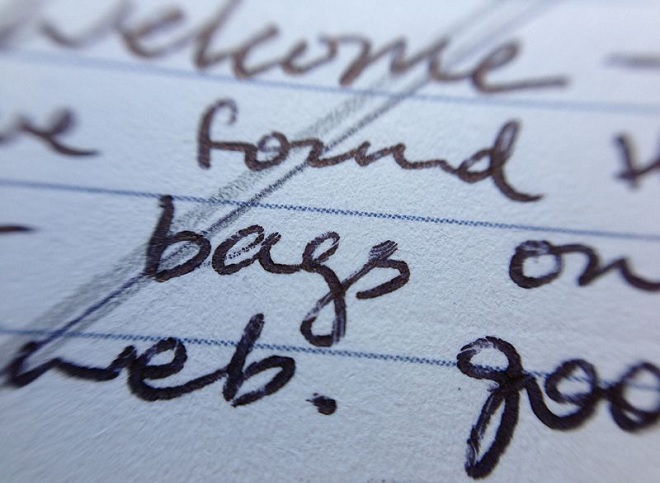 welcome -
found
- bags on
web. goo